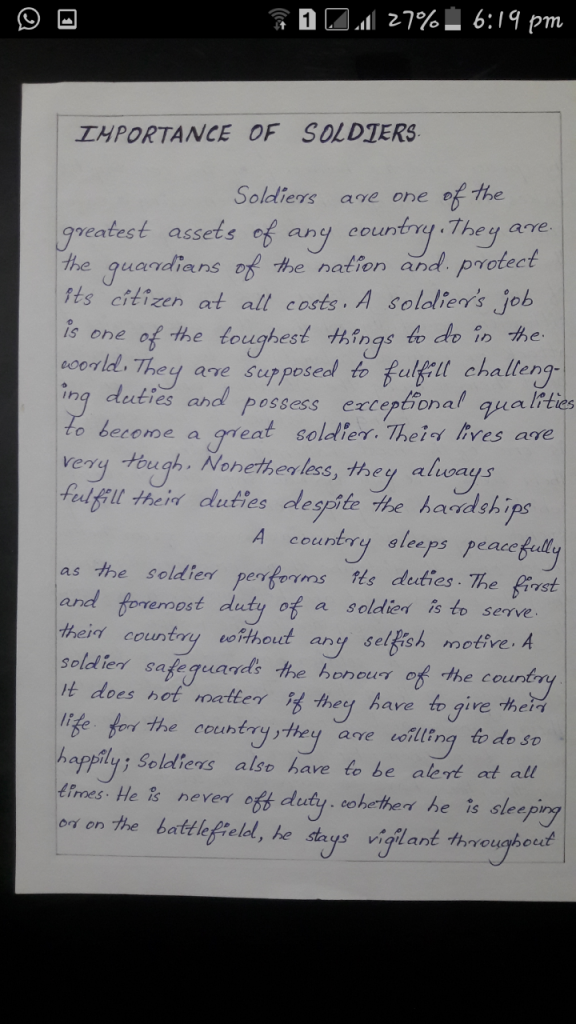 1 27% 6:19 pm
IMPORTANCE OF SOLDIERS.
Soldiers are one of the
greatest assets of any country. They are.
the guardians of the nation and. protect
its citizen at all costs. A soldier's job
is one of the toughest things to do in the.
world. They are supposed to fulfill challeng-
ing duties and possess exceptional qualities
to become a great soldier. Their lives are
very tough. Nonetherless, they always
fulfill their duties despite the hardships
A country sleeps peacefully
as the soldier performs its duties. The first
and foremost duty of a soldier is to serve.
their country without any selfish motive. A
soldier safeguard's the honour of the country.
It does not matter if they have to give their
life. for the country, they are willing to do so
happily; Soldiers also have to be alert at all
times. He is never off duty. whether he is sleeping
or on the battlefield, he stays vigilant throughout